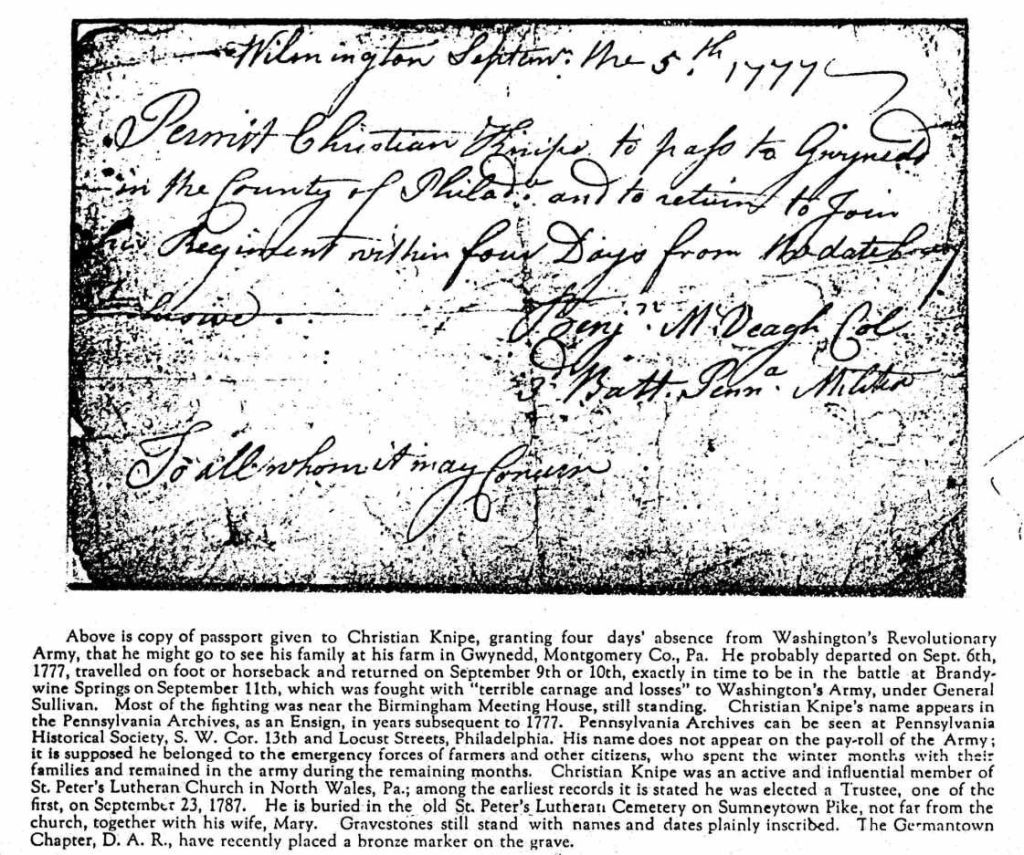 Wilmington Septemr. the 5.th 1777
Permit Christian Knipe to pass to Gwynedd
in the County of Philada. and to return to Join
his Regiment within four Days from the date
above.
Benjn. McVeagh Col
3d Batt. Penna. Militia
To all whom it may Concern
Above is copy of passport given to Christian Knipe, granting four days' absence from Washington's Revolutionary
Army, that he might go to see his family at his farm in Gwynedd, Montgomery Co., Pa. He probably departed on Sept. 6th,
1777, travelled on foot or horseback and returned on September 9th or 10th, exactly in time to be in the battle at Brandy-
wine Springs on September 11th, which was fought with "terrible carnage and losses" to Washington's Army, under General
Sullivan. Most of the fighting was near the Birmingham Meeting House, still standing. Christian Knipe's name appears in
the Pennsylvania Archives, as an Ensign, in years subsequent to 1777. Pennsylvania Archives can be seen at Pennsylvania
Historical Society, S. W. Cor. 13th and Locust Streets, Philadelphia. His name does not appear on the pay-roll of the Army;
it is supposed he belonged to the emergency forces of farmers and other citizens, who spent the winter months with their
families and remained in the army during the remaining months. Christian Knipe was an active and influential member of
St. Peter's Lutheran Church in North Wales, Pa.; among the earliest records it is stated he was elected a Trustee, one of the
first, on September 23, 1787. He is buried in the old St. Peter's Lutheran Cemetery on Sumneytown Pike, not far from the
church, together with his wife, Mary. Gravestones still stand with names and dates plainly inscribed. The Germantown
Chapter, D. A. R., have recently placed a bronze marker on the grave.